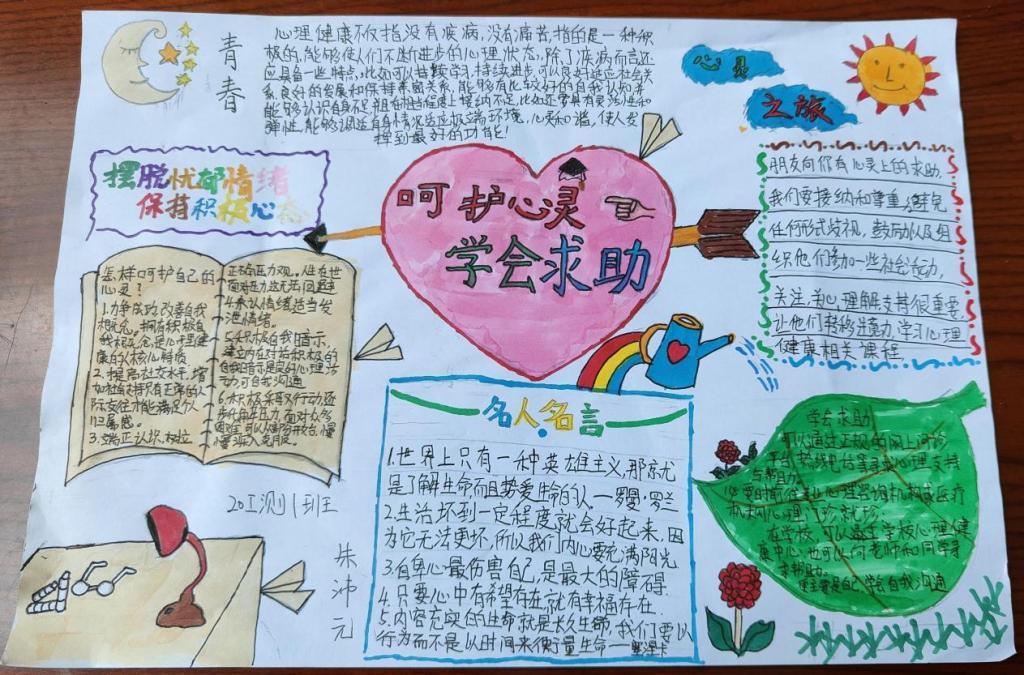 青春
心理健康不仅指没有疾病,没有痛苦,指的是一种积
极的,能够使人们不断进步的心理状态,除了疾病而言还
应具备一些特点,比如可以持续学习,持续进步,可以良好适应社会关
系,良好的发展和保持亲密关系,能够有比较好的自我认知并
能够认识自身不足
弹性,能够调适自身情况适应极端环境,心灵和谐,使人发
挥到最好的功能!
心灵
之旅
摆脱忧郁情绪
保持积极心态
呵护心灵
学会求助
朋友向你有心灵上的求助,
我们要接纳和尊重,避免
任何形式歧视,鼓励以及组
织他们参加一些社会活动,
关注,关心,理解支持很重要,
让他们转移注意力,学习心理
健康相关课程
怎样呵护自己的
心灵?
1.力争成功,改善自我
概念。拥有积极自
我概念是心理健
康的核心特质
2.提高社交水平,增
加社会支持只有正常的人
际交往才能满足个人
归属感。
3.端正认识,树立
正确压力观。人生在世
面对压力这无法回避
4.承认情绪适当发
泄情绪。
5.积极的自我暗示,
建立内在对话积极的
自我暗示是良好心理活
动,可自我沟通
6.积极采取行动,逐
步化解压力,面对众多
困难,可以制分开台,慢
慢深入克服。
20工测1班
朱沛元
名人名言
1.世界上只有一种英雄主义,那就
是了解生命而且热爱生命的人—罗曼·罗兰
2.生活坏到一定程度就会好起来,因
为它无法更坏,所以我们内心要充满阳光
3.自卑心最伤害自己,是最大的障碍
4.只要心中有希望存在,就有幸福存在.
5.内容充实的生命就是长久生命,我们要以
行为而不是以时间来衡量生命—塞涅卡
学会求助
可以通过正规的网上问诊
平台,热线电话等寻求心理支持
与帮助。
必要时前往专业心理咨询机构或医疗
机构心理门诊就诊。
在学校,可以寻求学校心理健
康中心,也可以向老师和同学寻
求帮助。
重要是自己,学会自我沟通